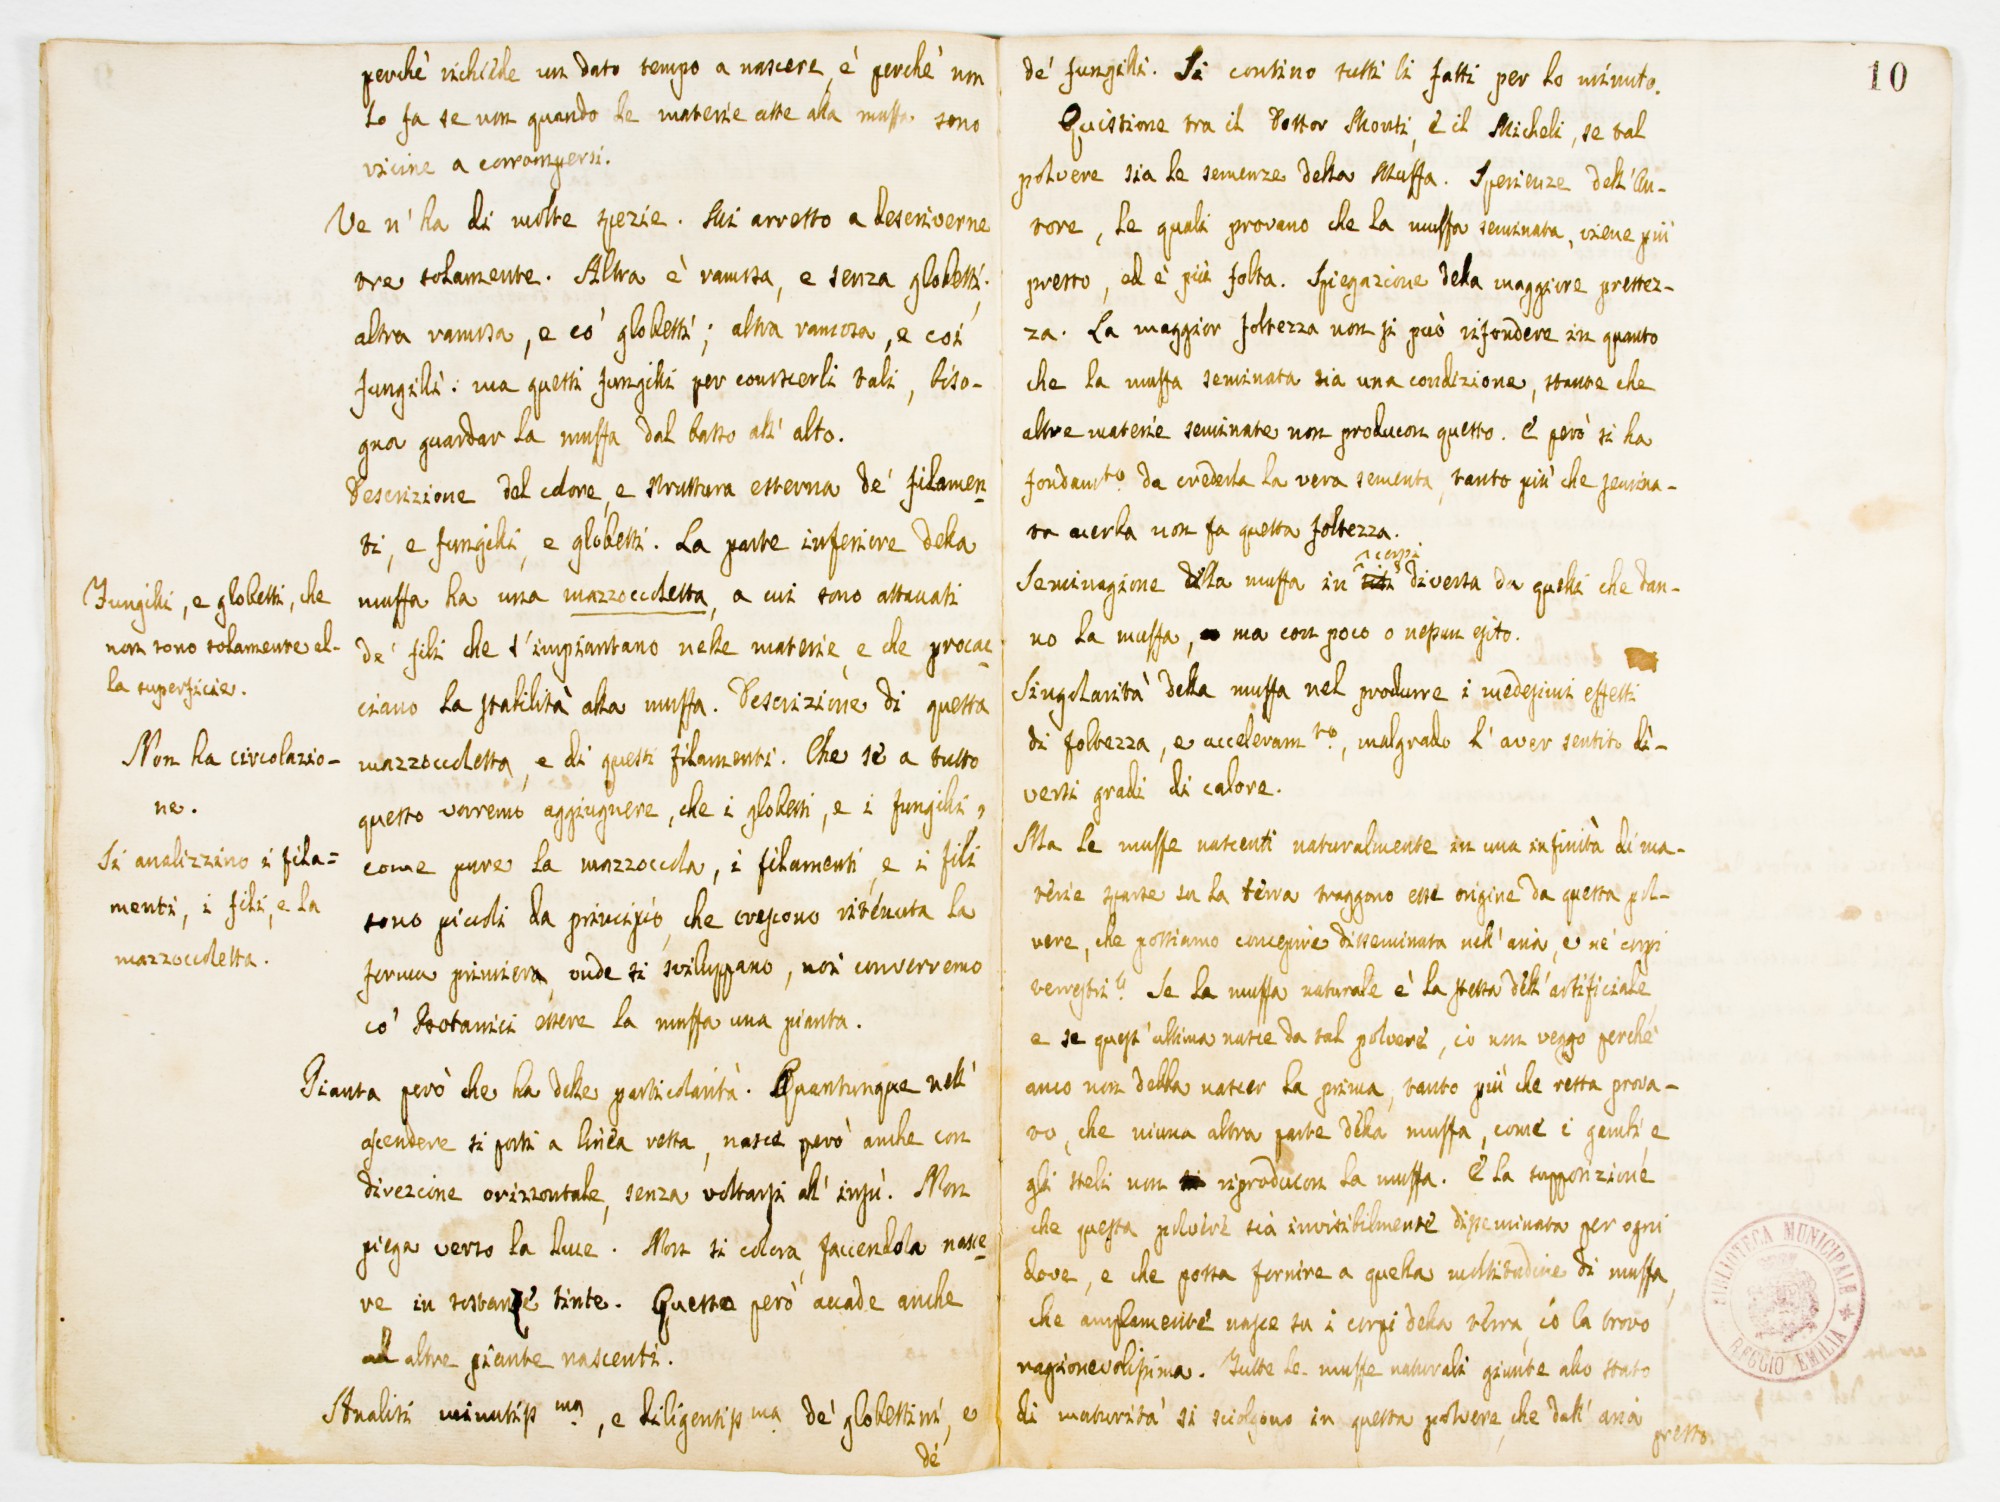 perchè richiede un dato tempo a nascere, e perchè non
lo fa se non quando le materie atte alla muffa sono
vicine a corrompersi.
Ve n'ha di molte spezie. Mi arresto a descriverne
tre solamente. Altra è ramosa, e senza globetti;
altra ramosa, e co' globetti; altra ramosa, e coi
fungilli: ma questi fungilli per conoscerli tali, biso-
gna guardar la muffa dal basso all'alto.
Descrizione del colore, e struttura esterna de' filamen-
ti, e fungilli, e globetti. La parte inferiore della
muffa ha una mazzoccoletta, a cui sono attaccati
de' fili che s'impiantano nelle materie, e che procac-
ciano la stabilità alla muffa. Descrizione di questa
mazzoccoletta, e di questi filamenti. Che se a tutto
questo vorremo aggiugnere, che i globetti, e i fungilli,
come pure la mazzoccola, i filamenti, e i fili
sono piccoli da principio, che crescono ritenuta la
forma primiera, onde si sviluppano, noi converremo
co' Botanici essere la muffa una pianta.
Pianta però che ha delle particolarità. Quantunque nell'
ascendere si porti a linea retta, nasce però anche con
direzione orizzontale, senza voltarsi all'insù. Non
piega verso la luce. Non si colora, faccendola nasce-
re in sostanze tinte. Questo però accade anche
ad altre piante nascenti.
Analisi minutiss.ma, e diligentiss.ma de' globettini, e
de'
Fungilli, e globetti, che
non sono solamente al-
la superficie.
Non ha circolazio-
ne.
Si analizzino i fila-
menti, i fili, e la
mazzoccoletta.
10
de' fungilli. Si contino tutti li fatti per lo minuto.
Quistione tra il Dottor Monti, e il Micheli, se tal
polvere sia le semenze della Muffa. Sperienze dell'Au-
tore, le quali provano che la muffa seminata, viene più
presto, ed è più folta. Spiegazione della maggiore prestez-
za. La maggior foltezza non si può rifondere in quanto
che la muffa seminata sia una condizione, stante che
altre materie seminate non producon questo. E però si ha
fondam.to da crederla la vera sementa, tanto più che semina-
ta acerba non fa questa foltezza.
corpi
Seminagione della muffa in siti diversa da quelli che dan-
no la muffa, ma con poco o nessun esito.
Singolarità della muffa nel produrre i medesimi effetti
di foltezza, e acceleram.to, malgrado l'aver sentito di-
versi gradi di calore.
Ma le muffe nascenti naturalmente in una infinità di ma-
terie sparse su la terra traggono esse origine da questa pol-
vere, che possiamo concepire disseminata nell'aria, e ne' corpi
terrestri? Se la muffa naturale è la stessa dell'artificiale,
e se quest'ultima nasce da tal polvere, io non veggo perchè
anco non debba nascer la prima, tanto più che resta prova-
to, che niuna altra parte della muffa, come i gambi e
gli steli non riproducon la muffa. E la supposizione
che questa polvere sia invisibilmente disseminata per ogni
dove, e che possa fornire a quella moltitudine di muffa,
che ampiamente nasce su i corpi della terra, io la trovo
ragionevolissima. Tutte le muffe naturali giunte allo stato
di maturità si sciolgono in questa polvere, che dall'aria
presto
BIBLIOTECA MUNICIPALE
REGGIO EMILIA